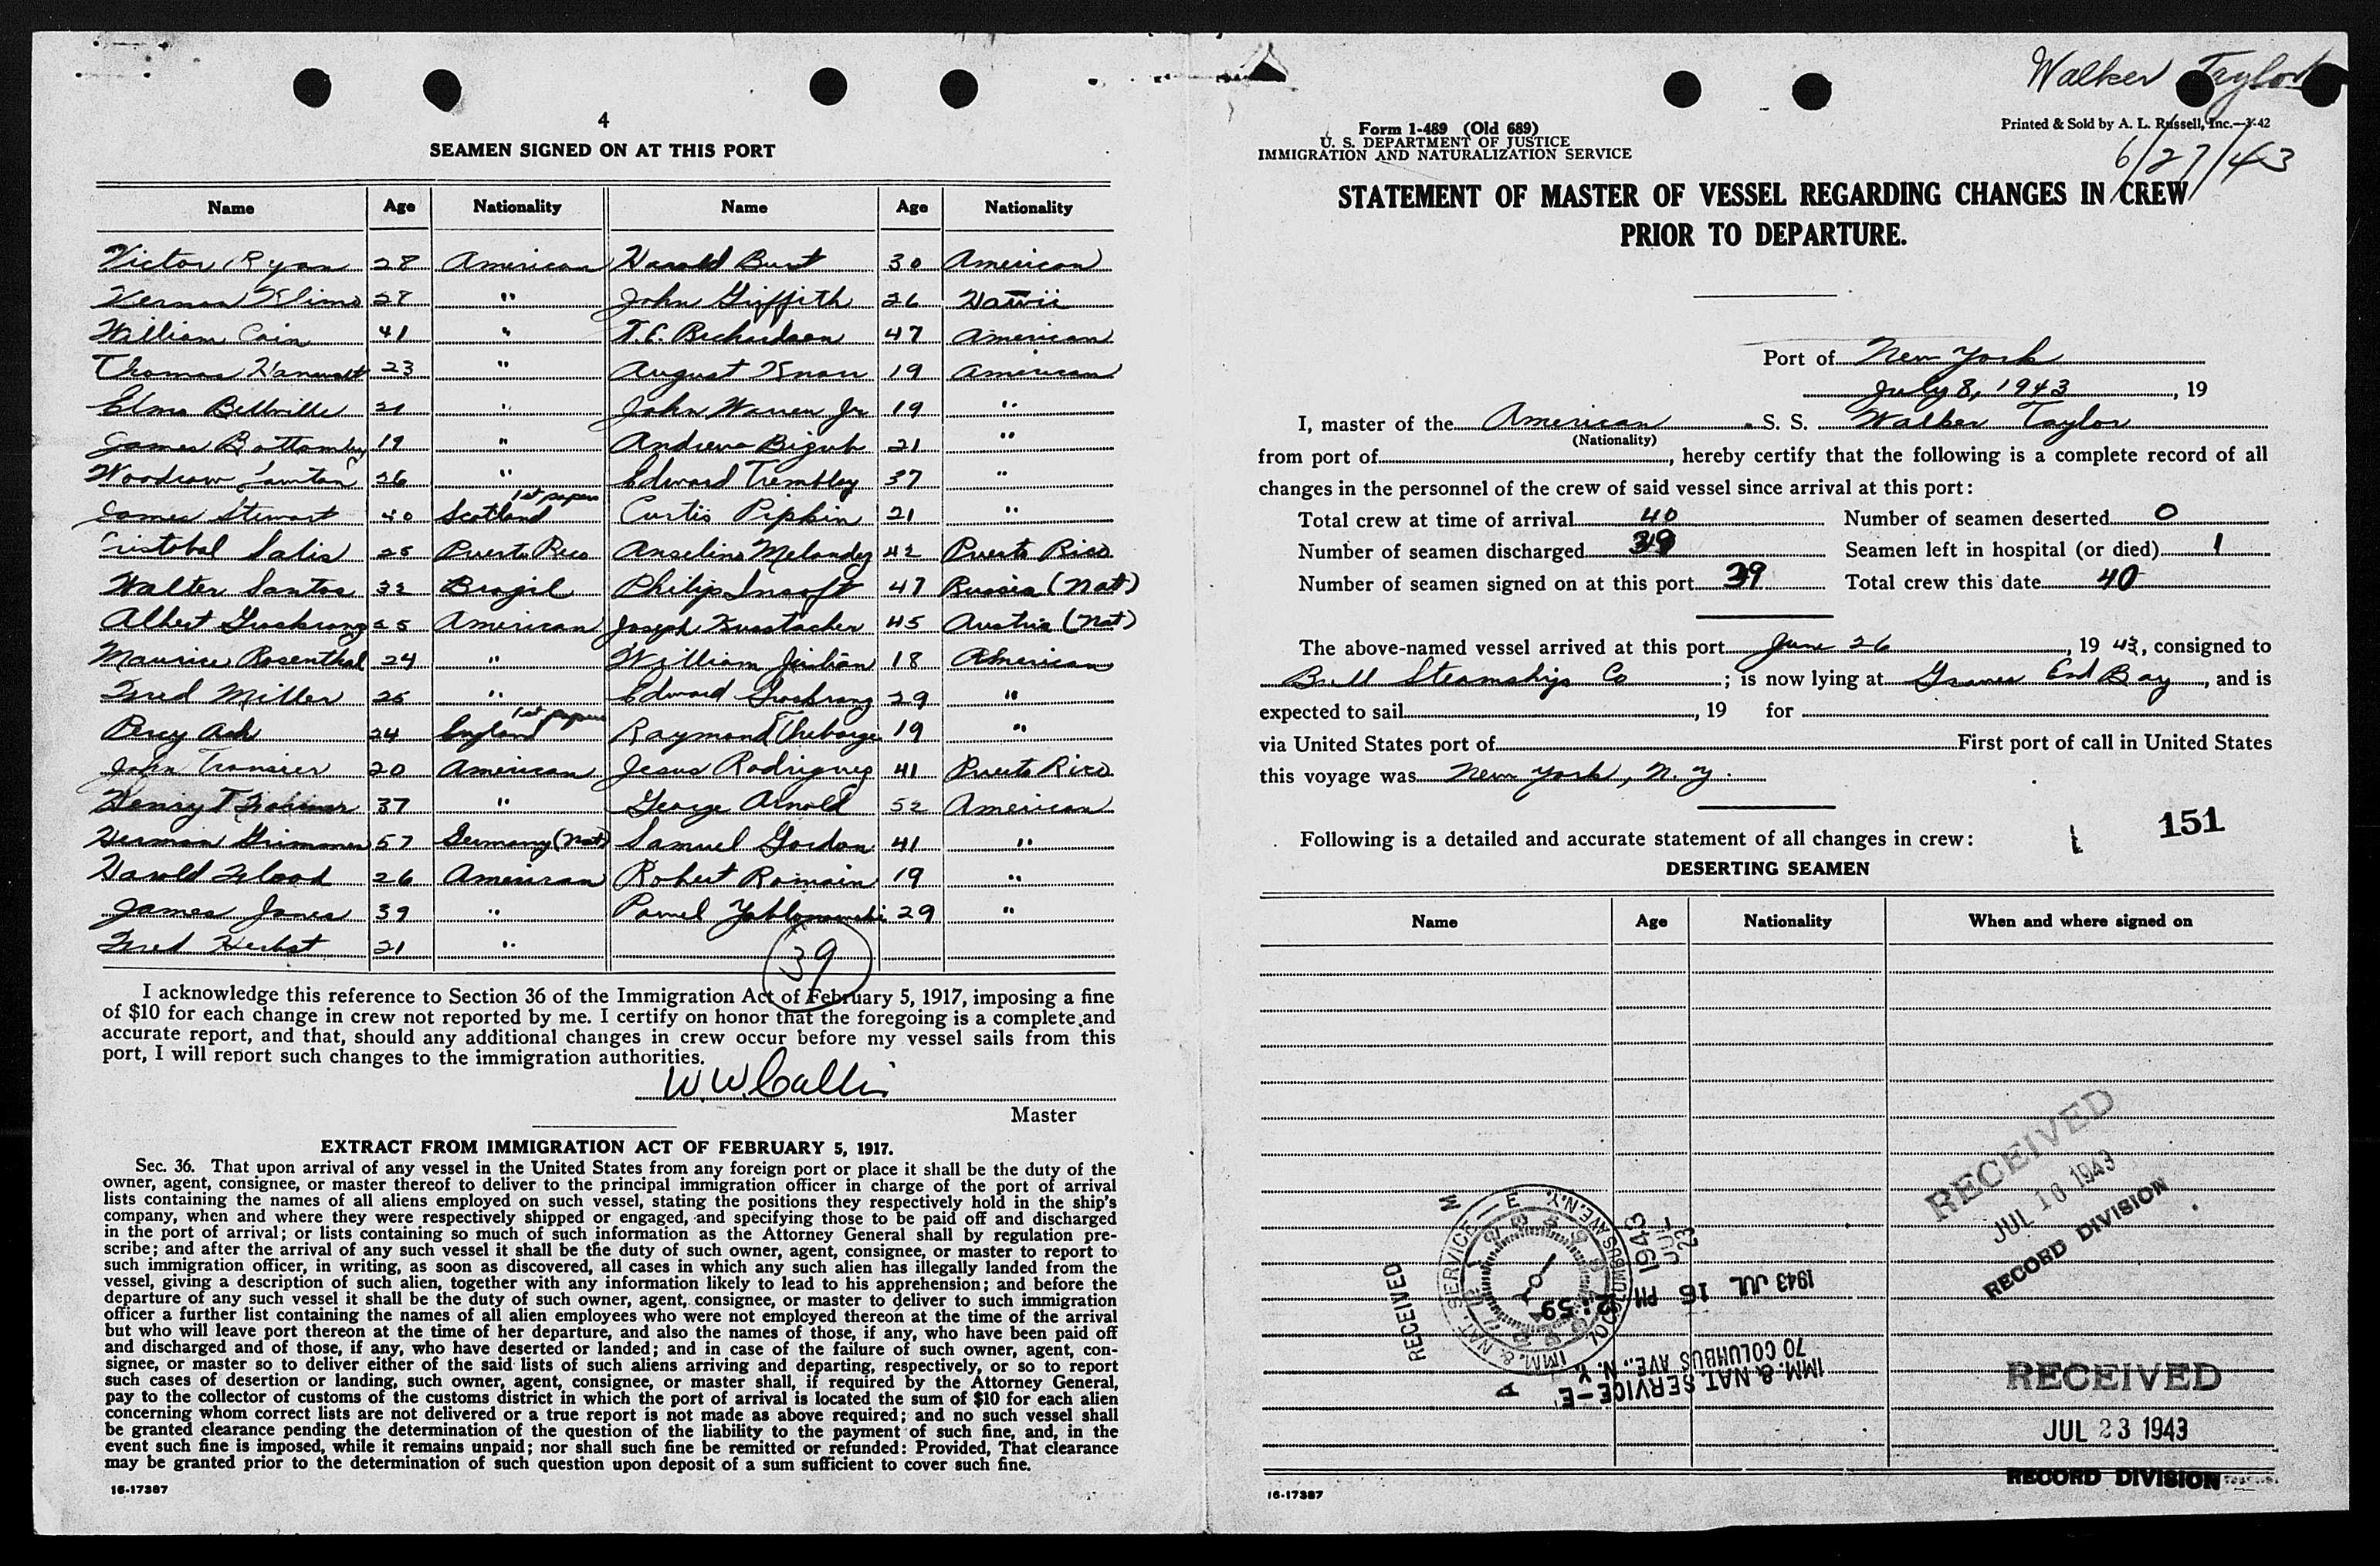 4
SEAMEN SIGNED ON AT THIS PORT
Name Age Nationality Name Age Nationality
Victor Ryan 28 American Harold Burt 30 American
Vernon 28 " John Griffith 26 Hawii
William Cain 41 " T.C. Richardson 47 American
Thomas 23 " August Knorr 19 American
Elmo Bellville 21 " John Warren Jr 19 "
James Bottomley 19 " Andrew 21 "
Woodrow 26 " Edward Trembley 37 "
James Stewart 40 Scotland 1st papers Curtis Pipkin 21 "
Cristobal Salis 25 Puerto Rico Anselino 42 Puerto Rico
Walter Santos 33 Brazil Philip 47 Russia (Nat)
Albert 25 American Joseph 45 Austria (Nat)
Maurice Rosenthal 24 " William 18 American
Fred Miller 25 " Edward 29 "
Percy Ash 24 England 1st papers Raymond Theberge 19 "
John 20 American Jesus Rodriguez 41 Puerto Rico
Henry T 37 " George Arnold 52 American
Herman 57 Germany (Nat) Samuel Gordon 41 "
Harold Flood 26 American Robert Romain 19 "
James Jones 39 " Pawel Yablonowski 29 "
Fred Herbst 21 "
39
I acknowledge this reference to Section 36 of the Immigration Act of February 5, 1917, imposing a fine
of $10 for each change in crew not reported by me. I certify on honor that the foregoing is a complete and
accurate report, and that, should any additional changes in crew occur before my vessel sails from this
port, I will report such changes to the immigration authorities.
W. W. Callis
Master
EXTRACT FROM IMMIGRATION ACT OF FEBRUARY 5, 1917.
Sec. 36. That upon arrival of any vessel in the United States from any foreign port or place it shall be the duty of the
owner, agent, consignee, or master thereof to deliver to the principal immigration officer in charge of the port of arrival
lists containing the names of all aliens employed on such vessel, stating the positions they respectively hold in the ship's
company, when and where they were respectively shipped or engaged, and specifying those to be paid off and discharged
in the port of arrival; or lists containing so much of such information as the Attorney General shall by regulation pre-
scribe; and after the arrival of any such vessel it shall be the duty of such owner, agent, consignee, or master to report to
such immigration officer, in writing, as soon as discovered, all cases in which any such alien has illegally landed from the
vessel, giving a description of such alien, together with any information likely to lead to his apprehension; and before the
departure of any such vessel it shall be the duty of such owner, agent, consignee, or master to deliver to such immigration
officer a further list containing the names of all alien employees who were not employed thereon at the time of the arrival
but who will leave port thereon at the time of her departure, and also the names of those, if any, who have been paid off
and discharged and of those, if any, who have deserted or landed; and in case of the failure of such owner, agent, con-
signee, or master so to deliver either of the said lists of such aliens arriving and departing, respectively, or so to report
such cases of desertion or landing, such owner, agent, consignee, or master shall, if required by the Attorney General,
pay to the collector of customs of the customs district in which the port of arrival is located the sum of $10 for each alien
concerning whom correct lists are not delivered or a true report is not made as above required; and no such vessel shall
be granted clearance pending the determination of the question of the liability to the payment of such fine, and, in the
event such fine is imposed, while it remains unpaid; nor shall such fine be remitted or refunded: Provided, That clearance
may be granted prior to the determination of such question upon deposit of a sum sufficient to cover such fine.
16-17387
Walker Taylor
6/27/43
Form 1-489 (Old 689)
U. S. DEPARTMENT OF JUSTICE
IMMIGRATION AND NATURALIZATION SERVICE
Printed & Sold by A. L. Russell, Inc.—3-42
STATEMENT OF MASTER OF VESSEL REGARDING CHANGES IN CREW
PRIOR TO DEPARTURE.
Port of New York
July 8, 1943, 19
I, master of the American S. S. Walker Taylor
(Nationality)
from port of, hereby certify that the following is a complete record of all
changes in the personnel of the crew of said vessel since arrival at this port:
Total crew at time of arrival 40 Number of seamen deserted 0
Number of seamen discharged 39 Seamen left in hospital (or died) 1
Number of seamen signed on at this port 39 Total crew this date 40
The above-named vessel arrived at this port June 26, 19 43, consigned to
Bull Steamship Co; is now lying at Graves End Bay, and is
expected to sail, 19 for
via United States port of First port of call in United States
this voyage was New York, N.Y.
151
Following is a detailed and accurate statement of all changes in crew:
DESERTING SEAMEN
Name Age Nationality When and where signed on
RECEIVED
JUL 16 1943
RECORD DIVISION
RECEIVED
IMM. & NAT. SERVICE — E
70 COLUMBUS AVE. N.Y.
1943 JUL 16 PM 2:59
IMM. & NAT. SERVICE—E
70 COLUMBUS AVE., N. Y.
1943
JUL
23
RECEIVED
JUL 23 1943
RECORD DIVISION
16-17387